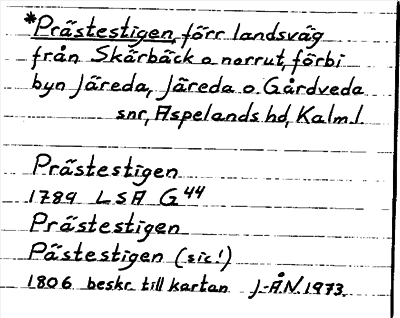 *Prästestigen, förr landsväg
från Skärbäck o norrut, förbi
byn Järeda, Järeda o. Gårdveda
snr, Aspelands hd, Kalm. l.
Prästestigen
1789 LSA G 44
Prästestigen
Pästestigen (sic!)
1806 beskr. till kartan J-ÅN. 1973.